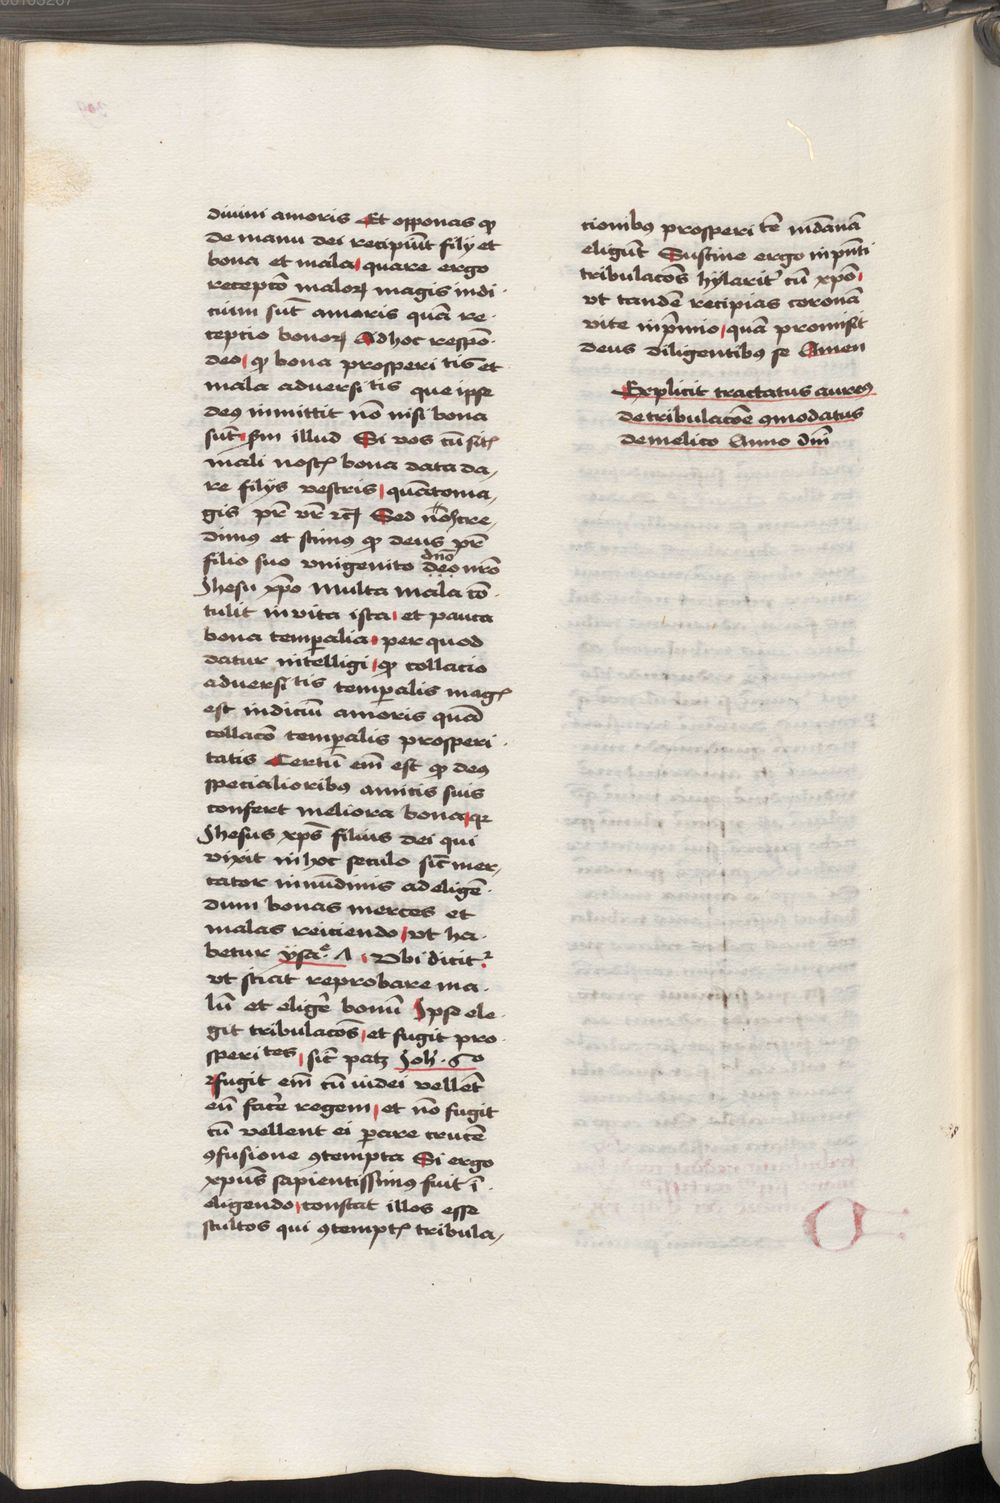 diuini amoris Et opponas qꝫ
de manu dei recipiūt filij et
bona et mala quare ergo
receptō maloꝝ magis indi
cium sūt amoris quā re
ceptio bonoꝝ Ad hoc respō
deo qꝫ bona prosperitis et
mala adversitis que ipse
deꝰ inmittit nō nisi bona
sūt sm illud Si vos cū sitꝭ
mali nostꝭ bona data da
re filijs vestris quātoma
gis pr̄ vr̄ rcꝫ Sed cre
dimꝰ et scimꝰ qꝫ deus pr̄
filio suo vnigenito dn̄o deo nr̄o
Jhesu xp̄o multa mala cō
tulit in vita ista et pauca
bona temp̄alia per quod
datur intelligi qꝫ collacio
adversitis temp̄alis magꝭ
est indiciū amoris quā
collacō temp̄alis prosperi
tatis Certū em̄ est qꝫ deꝰ
specialioribꝰ amicis suis
confert meliora bona qꝫ
Jhesus xp̄s filius dei qui
vixit in hoc seculo sic̄ mer
cator in nūdinis ad eligē
dum bonas merces et
malas reiciendo vt ha
betur ysa. Λ Vbi dicit
vt sciat reprobare ma
lū et elige̅ bonū Ipse ele
git tribulacōs et fugit pro
speritēs sic̄ patꝫ Joh.
fugit em̄ cū iudei vellēt
eū face̅ regem et nō fugit
cū vellent ei p̄are crucē
ꝯfusione ꝯtempta Si ergo
xpūs sapientissimꝰ fuit ī
eligendo constat illos esse
stultos qui ꝯtemptꝭ tribula
cionibꝰ prosperitē mūdanā
eligūt Sustine ergo in pn̄ti
tribulacōs hylarit̄ cū xp̄o
vt tandē recipias coronā
vite in pm̄io quā promisit
deus diligentibꝰ se Amen
Explicit tractatus aureꝰ
de tribulacōe ꝯmodatus
de melico Anno dn̄i